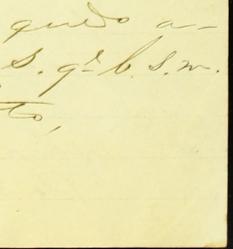 quedo a-
S. qe. b. s. m.
to,